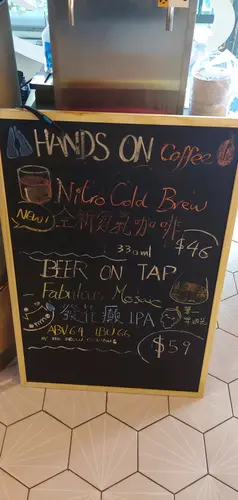 HANDS ON Coffee
Nitro Cold Brew
NEW!
全新氮氣咖啡
330ml
$46
BEER ON TAP
Fabulous Mosaic
發花癲 IPA
ABV 6.9 IBU 66
$59